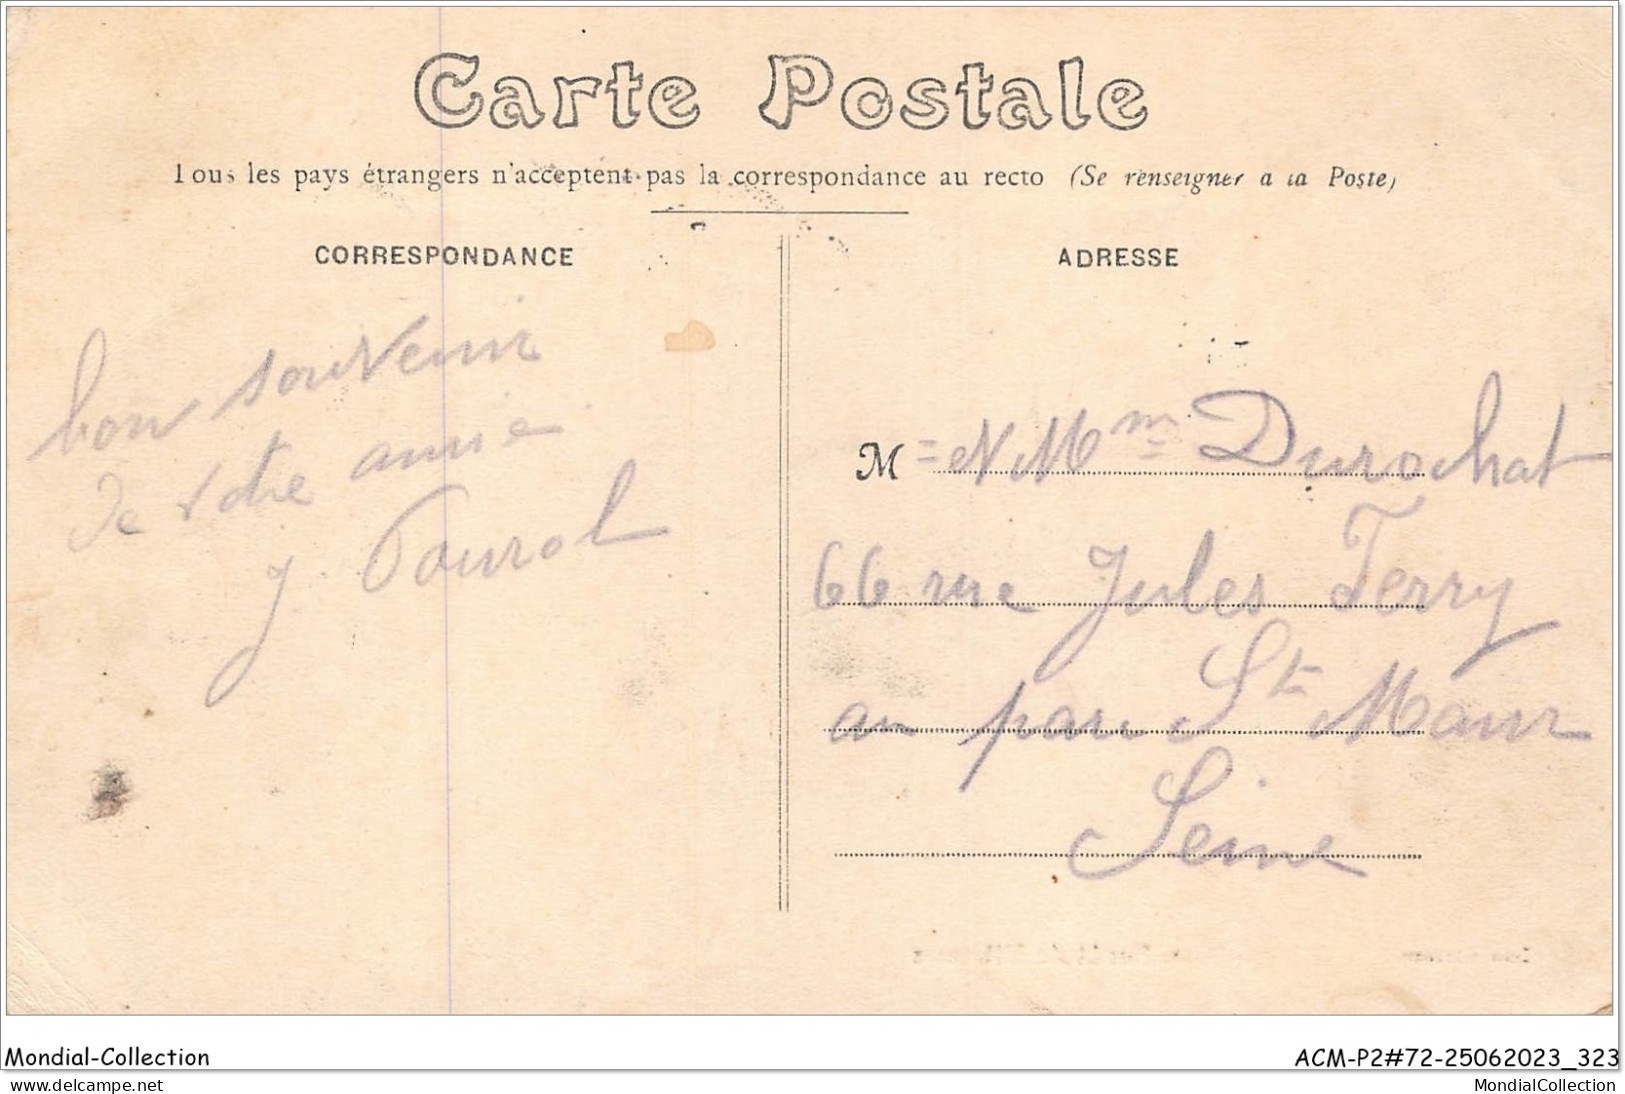 Carte Postale
Tous les pays étrangers n'acceptent pas la correspondance au recto (Se renseigner a la Poste)
CORRESPONDANCE
ADRESSE
bon souvenir
de votre amie
J
M = Mme Durochat
66 rue Jules Ferry
au parc St Maur
Seine
Mondial-Collection
ACM-P2#72-25062023_323
delcampe.net
MondialCollection